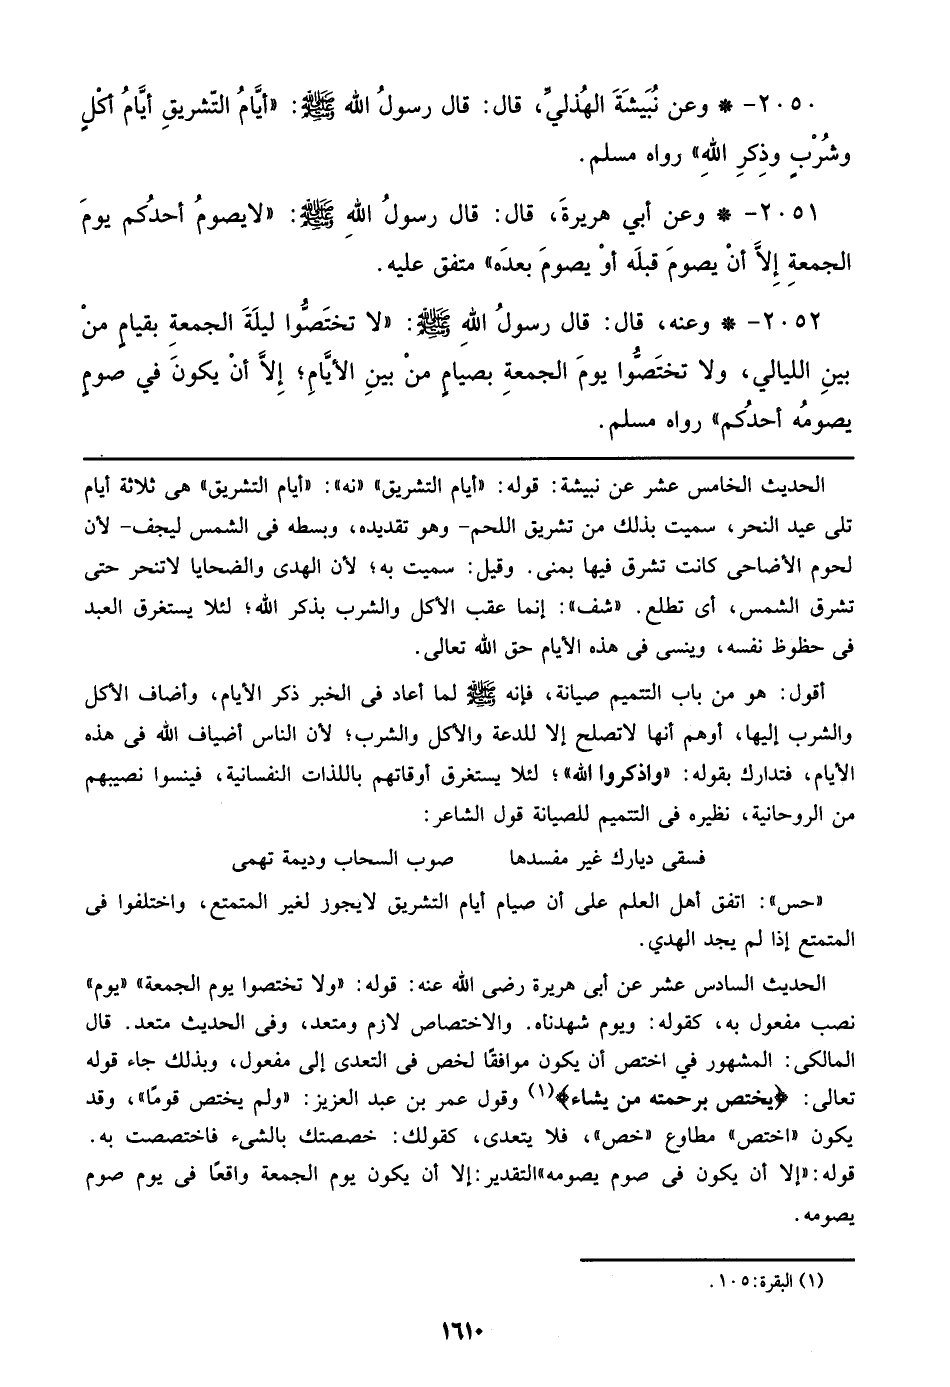 ٢٠٥٠- * وعن نُبَيشَةَ الهُذليِّ، قال: قال رسولُ الله ﷺ: «أيَّامُ التّشريقِ أيَّامُ أكْلٍ
وشُرْبٍ وذِكرِ اللهِ» رواه مسلم.
٢٠٥١- * وعن أبي هريرةَ، قال: قال رسولُ اللهِ ﷺ: «لايصومُ أحدُكم يومَ
الجمعةِ إِلاَّ أنْ يصومَ قبلَه أوْ يصومَ بعدَه» متفق عليه.
٢٠٥٢- * وعنه، قال: قال رسولُ اللهِ ﷺ: «لا تختَصُّوا ليلَةَ الجمعةِ بقيامٍ منْ
بينِ الليالي، ولا تختَصُّوا يومَ الجمعةِ بصيامٍ منْ بينِ الأيَّامِ؛ إِلاَّ أنْ يكونَ في صومٍ
يصومُه أحدُكم» رواه مسلم.
الحديث الخامس عشر عن نبيشة: قوله: «أيام التشريق» «نه»: «أيام التشريق» هى ثلاثة أيام
تلى عيد النحر، سميت بذلك من تشريق اللحم- وهو تقديده، وبسطه فى الشمس ليجف- لأن
لحوم الأضاحى كانت تشرق فيها بمنى. وقيل: سميت به؛ لأن الهدى والضحايا لاتنحر حتى
تشرق الشمس، أى تطلع. «شف»: إنما عقب الأكل والشرب بذكر الله؛ لئلا يستغرق العبد
فى حظوظ نفسه، وينسى فى هذه الأيام حق الله تعالى.
أقول: هو من باب التتميم صيانة، فإنه ﷺ لما أعاد فى الخبر ذكر الأيام، وأضاف الأكل
والشرب إليها، أوهم أنها لاتصلح إلا للدعة والأكل والشرب؛ لأن الناس أضياف الله فى هذه
الأيام، فتدارك بقوله: «واذكروا الله»؛ لئلا يستغرق أوقاتهم باللذات النفسانية، فينسوا نصيبهم
من الروحانية، نظيره فى التتميم للصيانة قول الشاعر:
فسقى ديارك غير مفسدها صوب السحاب وديمة تهمى
«حس»: اتفق أهل العلم على أن صيام أيام التشريق لايجوز لغير المتمتع، واختلفوا فى
المتمتع إذا لم يجد الهدي.
الحديث السادس عشر عن أبى هريرة رضى الله عنه: قوله: «ولا تختصوا يوم الجمعة» «يوم»
نصب مفعول به، كقوله: ويوم شهدناه. والاختصاص لازم ومتعد، وفى الحديث متعد. قال
المالكى: المشهور في اختص أن يكون موافقًا لخص فى التعدى إلى مفعول، وبذلك جاء قوله
تعالى: ﴿يختص برحمته من يشاء﴾(١) وقول عمر بن عبد العزيز: «ولم يختص قومًا»، وقد
يكون «اختص» مطاوع «خص»، فلا يتعدى، كقولك: خصصتك بالشىء فاختصصت به.
قوله:«إلا أن يكون فى صوم يصومه»التقدير:إلا أن يكون يوم الجمعة واقعًا فى يوم صوم
يصومه.
(١) البقرة:١٠٥.
١٦١٠